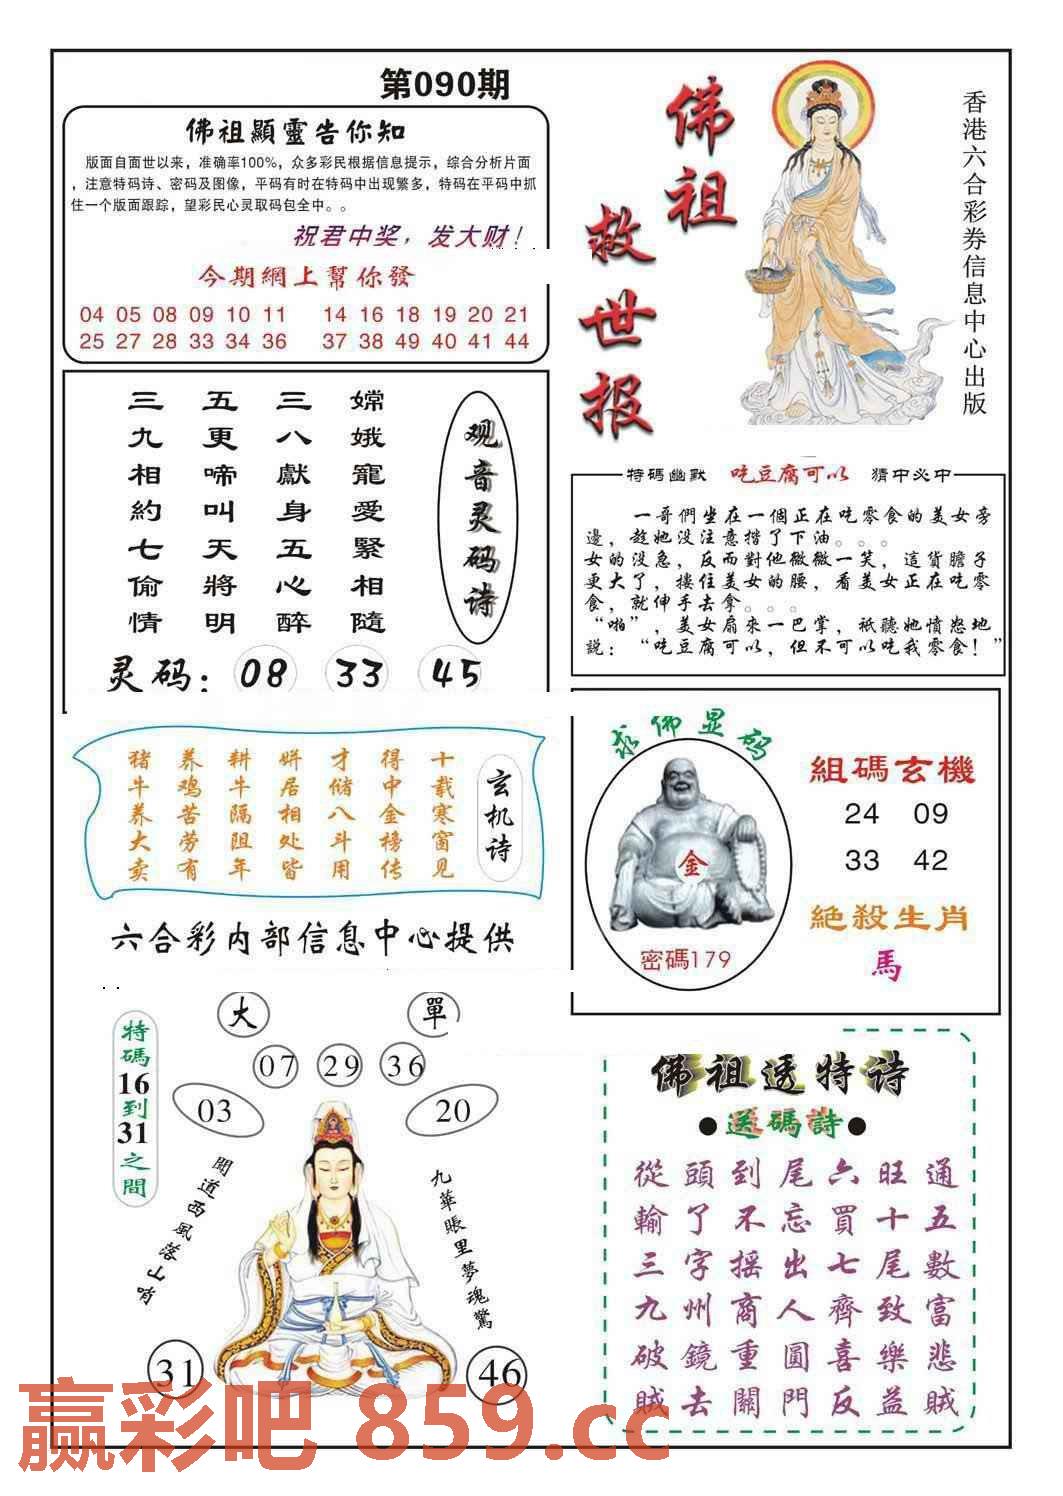 第090期
佛祖顯靈告你知
版面自面世以来，准确率100%，众多彩民根据信息提示，综合分析片面
，注意特码诗、密码及图像，平码有时在特码中出现繁多，特码在平码中抓
住一个版面跟踪，望彩民心灵取码包全中。。
祝君中奖，发大财！
今期網上幫你發
04 05 08 09 10 11 14 16 18 19 20 21
25 27 28 33 34 36 37 38 49 40 41 44
佛祖
救世报
香港六合彩券信息中心出版
观音灵码诗
嫦娥寵愛緊相隨
三八獻身五心醉
五更啼叫天將明
三九相約七偷情
灵码：08 33 45
特碼幽默 吃豆腐可以 猜中必中
一哥們坐在一個正在吃零食的美女旁
邊，趁她没注意揩了下油。。。
女的没急，反而對他微微一笑，這貨膽子
更大了，摟住美女的腰，看美女正在吃零
食，就伸手去拿。。。
“啪”，美女扇來一巴掌，祇聽她憤怒地
説：“吃豆腐可以，但不可以吃我零食！”
玄机诗
十载寒窗见
得中金榜传
才储八斗用
姘居相处皆
耕牛隔阻年
养鸡苦劳有
猪牛养大卖
六合彩内部信息中心提供
求佛显码
金
密碼179
組碼玄機
24 09
33 42
絶殺生肖
馬
特碼16到31之間
大 單
07 29 36
03 20
聞道西風落山哨
九華賬里夢魂驚
31 46
佛祖透特诗
●送碼詩●
從頭到尾六旺通
輸了不忘買十五
三字摇出七尾數
九州商人齊致富
破鏡重圓喜樂悲
賊去關門反益賊
赢彩吧 859.cc